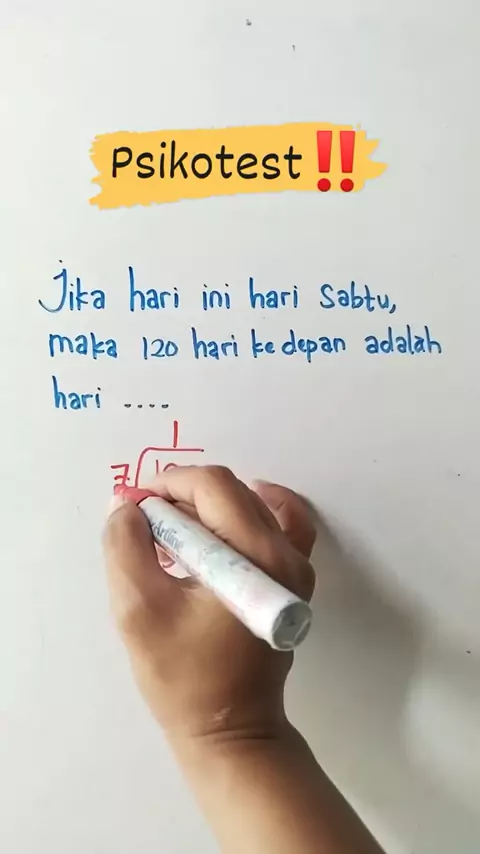 Psikotest‼️
Jika hari ini hari Sabtu,
maka 120 hari ke depan adalah
hari ....
1
7